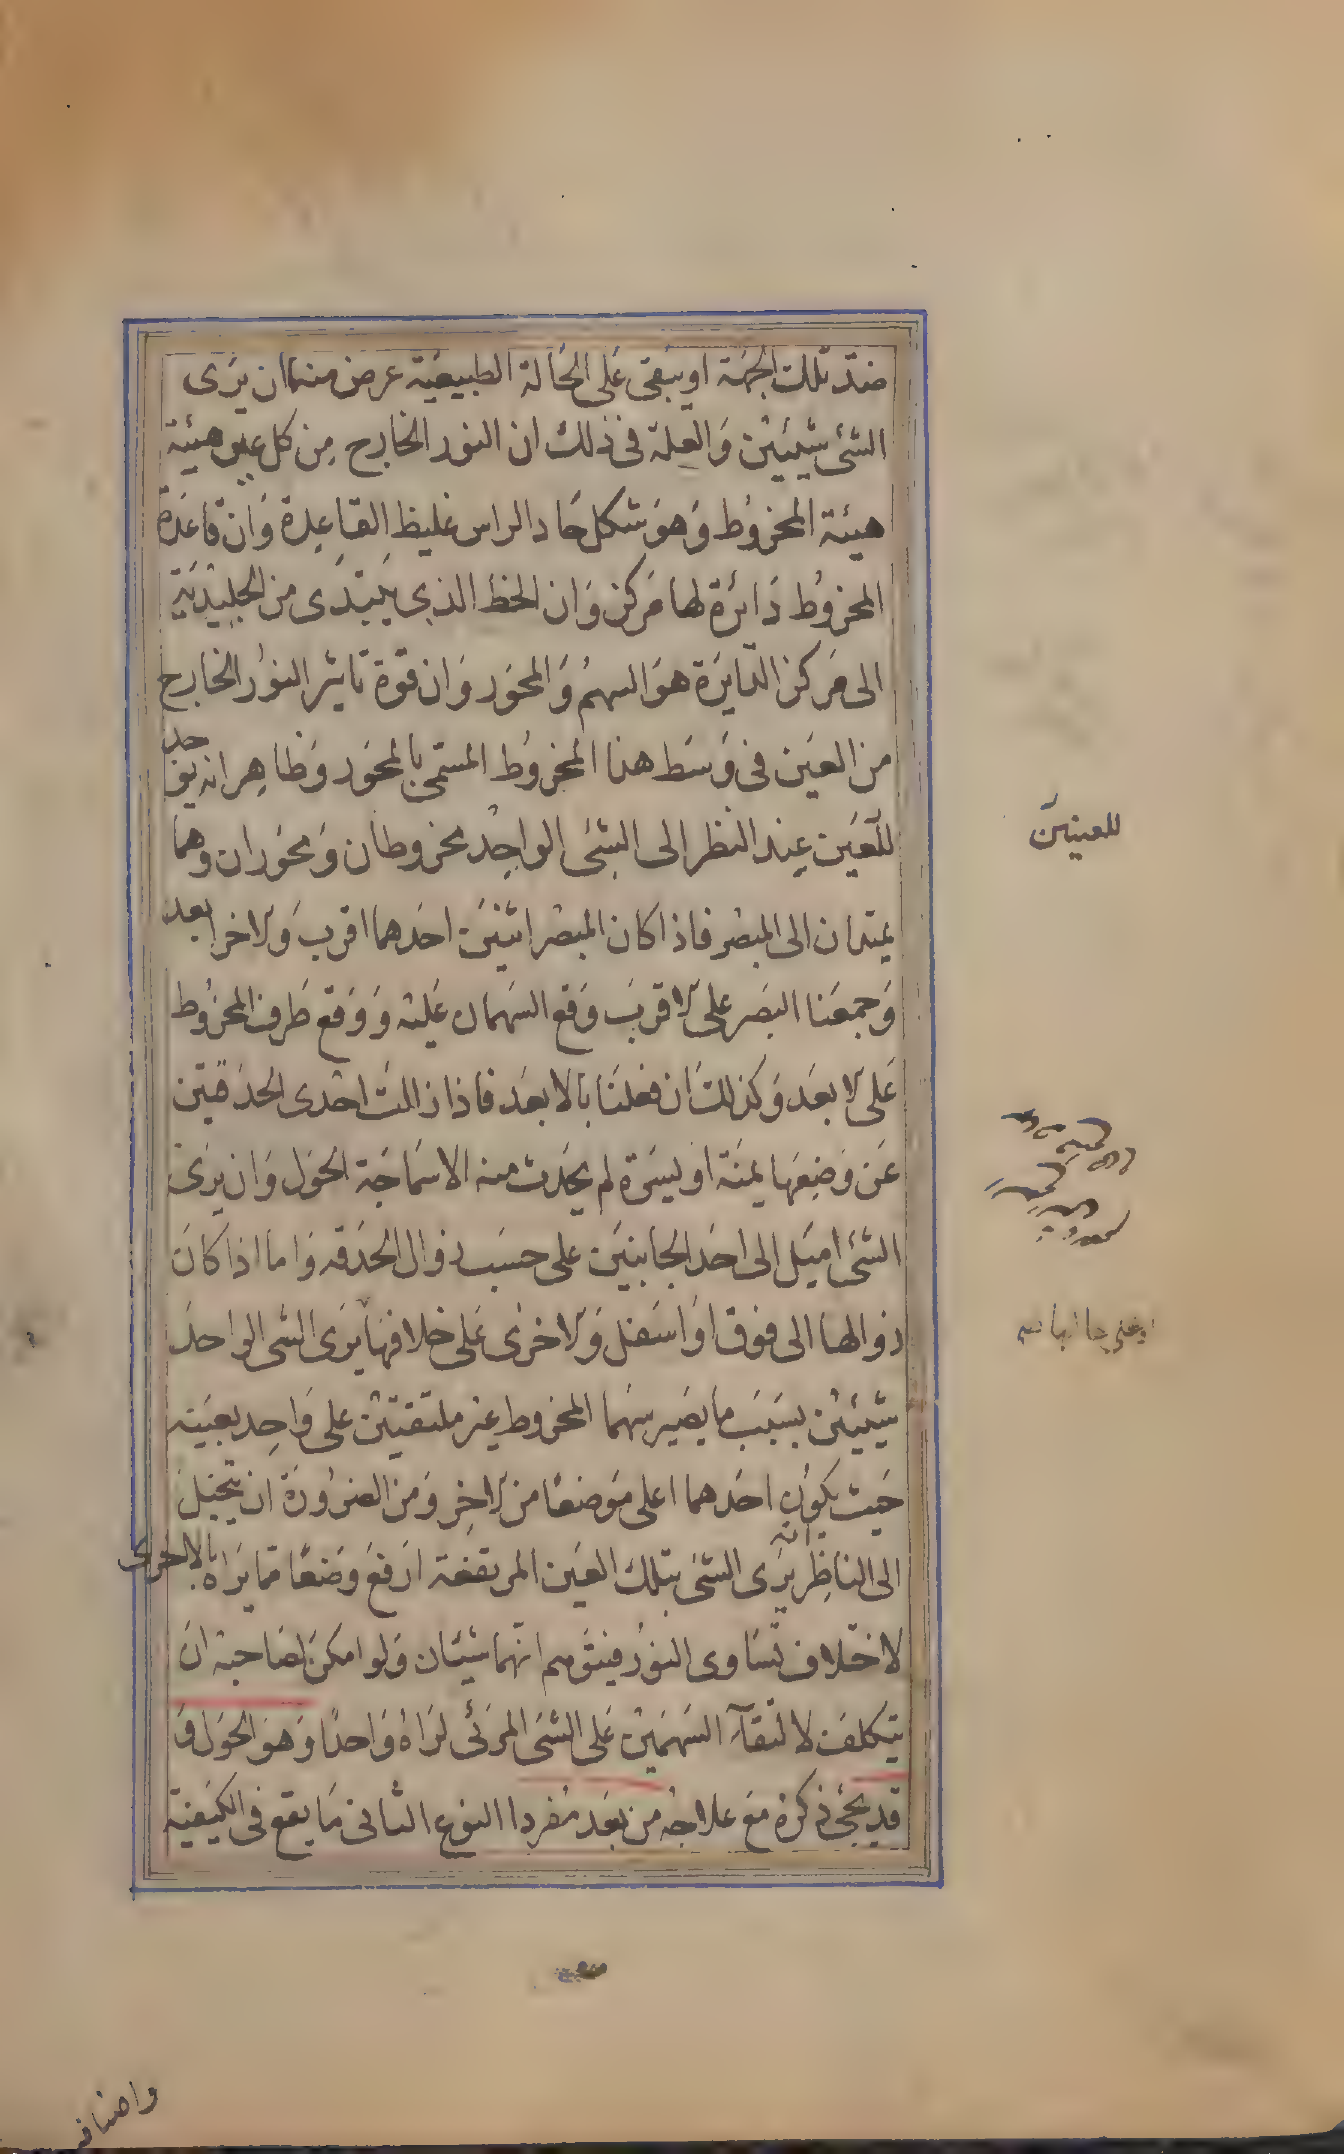 ضد تلك الجهة او يبقى على الحالة الطبيعية عرض منهما ان يرى
الشئ شيئين والعلة فى ذلك ان النور الخارج من كل عين هيئة
هيئة المخروط وهو شكل حاد الراس غليظ القاعدة وان قاعدة
المخروط دائرة لها مركز وان الخط الذى يبتدى من الجليدية
الى مركز الدايرة هو السهم والمحور وان قوة تاثير النور الخارج
من العين فى وسط هذا المخروط المسمى بالمحور وظاهر انه يوجد
للعين عند النظر الى الشئ الواحد مخروطان ومحوران وهما
للعينين
يمتدان الى المبصر فاذا كان المبصر اثنين احدهما اقرب والاخر ابعد
وجمعنا البصر على الاقرب وقع السهمان عليه ووقع طرف المخروط
على الابعد وكذلك ان فعلنا بالابعد فاذا زالت احدى الحدقتين
عن وضعها يمنة او يسرة لم يحدث منه الا سماجة الحول وان يرى
الشئ اميل الى احد الجانبين على حسب زوال الحدقه واما اذا كان
زوالها الى فوق او اسفل والاخرى على خلافها يرى الشى الواحد
شيئين بسبب ما يصير سهما المخروط غير ملتقيتين على واحد بعينه
حيث يكون احدهما اعلى موضعا من الاخر ومن الضرورة ان يتخيل
الى الناظر انه يرى الشئ بتلك العين المرتفعة ارفع وضعا مما يراه بالاخرى
لاختلاف تساوى النور فيتوهم انهما شيئان ولو امكن لصاحبه ان
يتكلف لالتقآء السهمين على الشئ المرئى لراه واحدا وهو الحول و
قد يجئ ذكره مع علاجه من بعد مفردا النوع الثانى ما يقع فى الكيفية
واصنافه